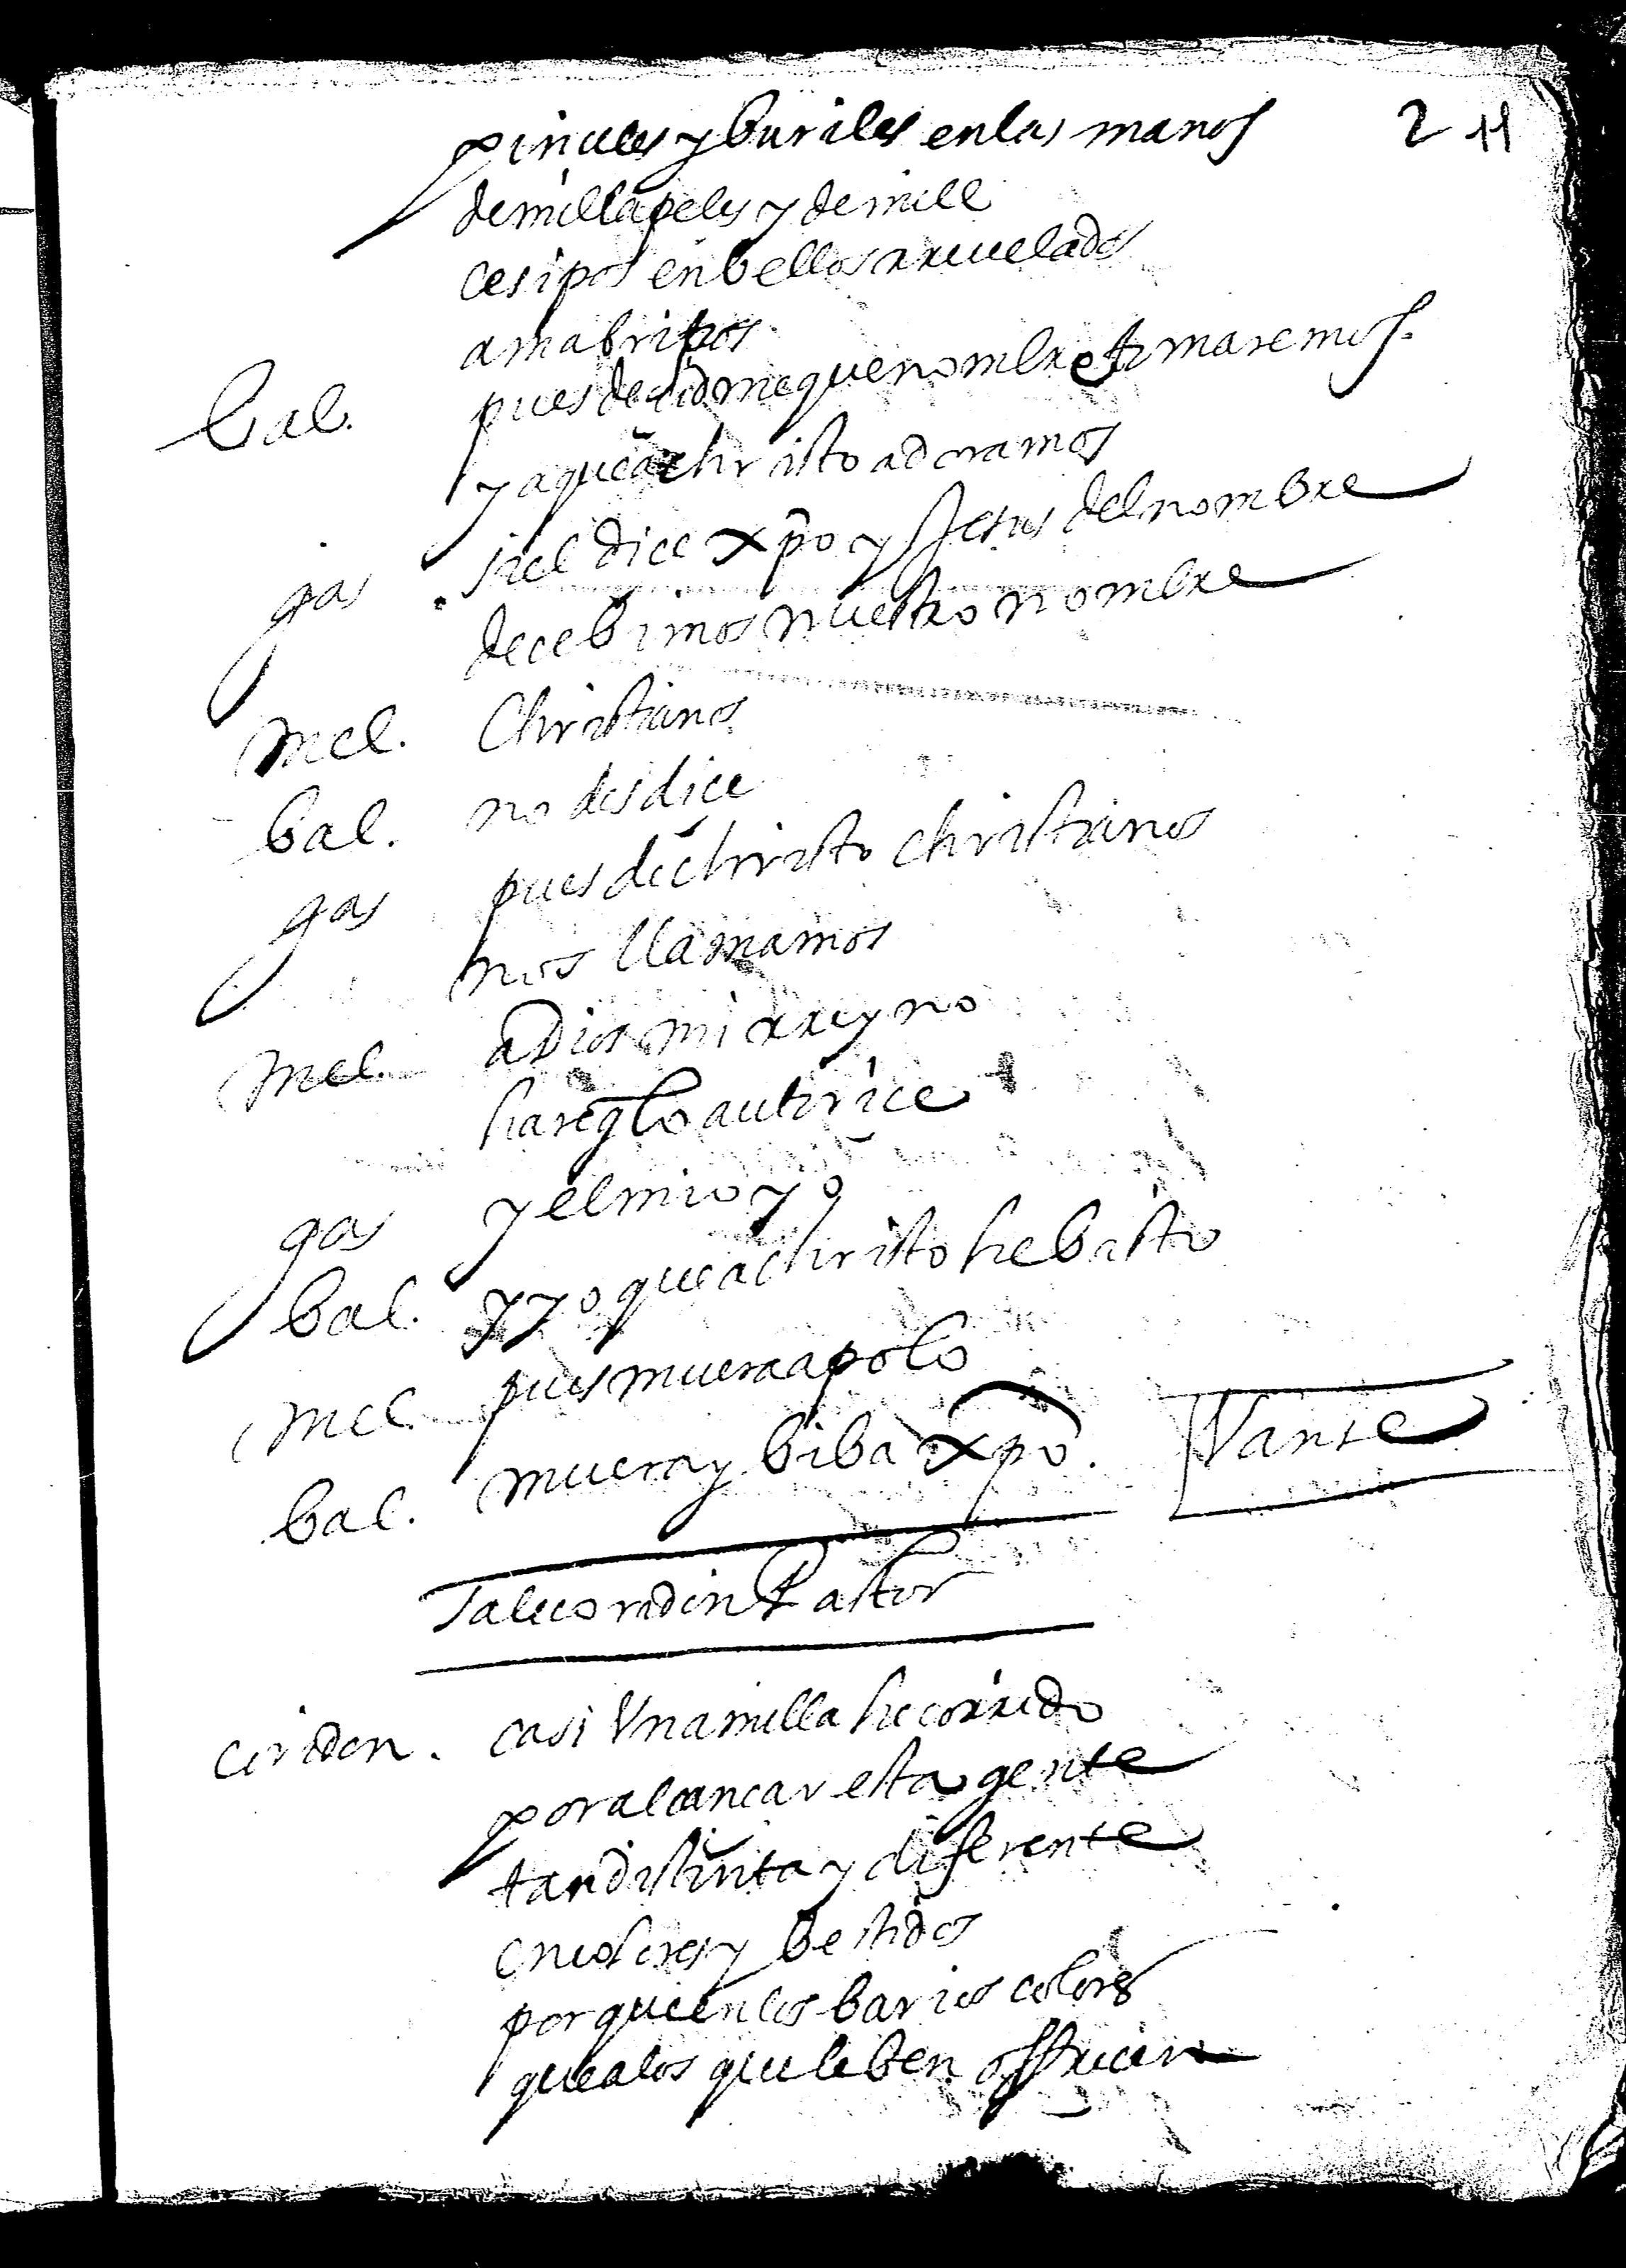 pinceles y buriles en las manos 2 11
de mill apeles y de mill
cesipos en bellos rrevelados
bal. pues decidme que nombre tomaremos.
ya que a christo adoramos
gas si el dice xpo y Jesus del nombre
decebimos nuestro nombre
mel. Christianos
bal. no desdice
gas pues de christo christianos
nos llamamos
mel. a Dios mi rreyno
hare q lo autorice
gas y el mio yo
bal. y yo que a christo he bisto
mel. pues muera apolo
bal. muera y biba xpo. Vanse
sale coridon Pastor
coridon. casi Vna milla he corrido
por alcancar esta gente
tan distinta y diferente
en colores y bestidos
porque en los barios colores
que a los que le ben ofrecen